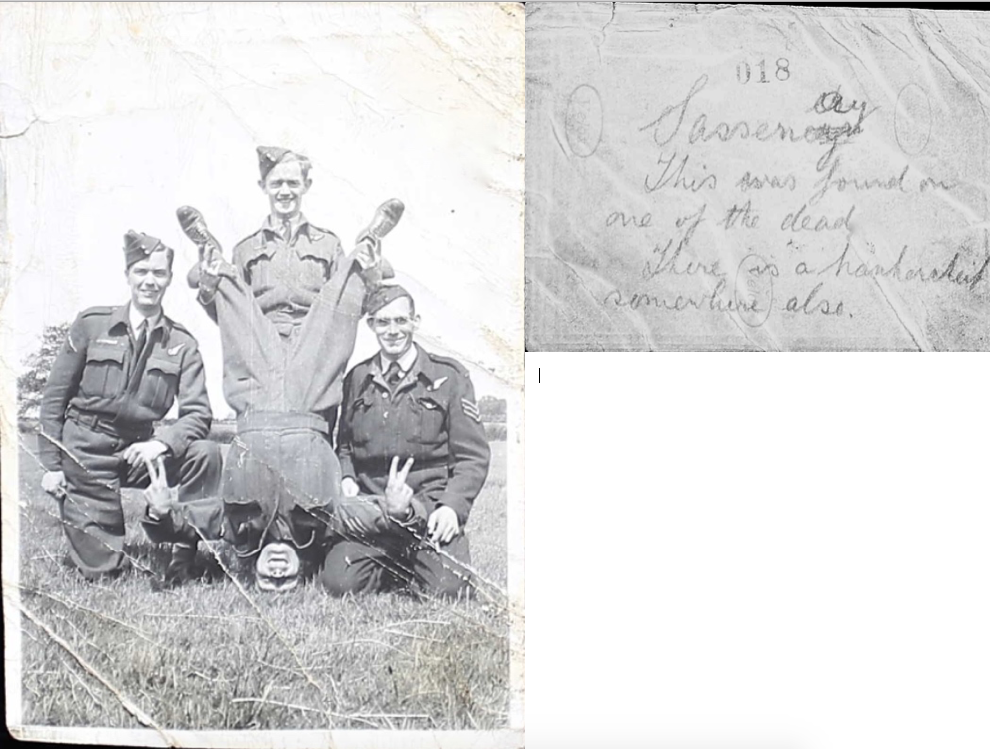 018
Sassenay
This was found on
one of the dead
There is a hankercheif
somewhere also.